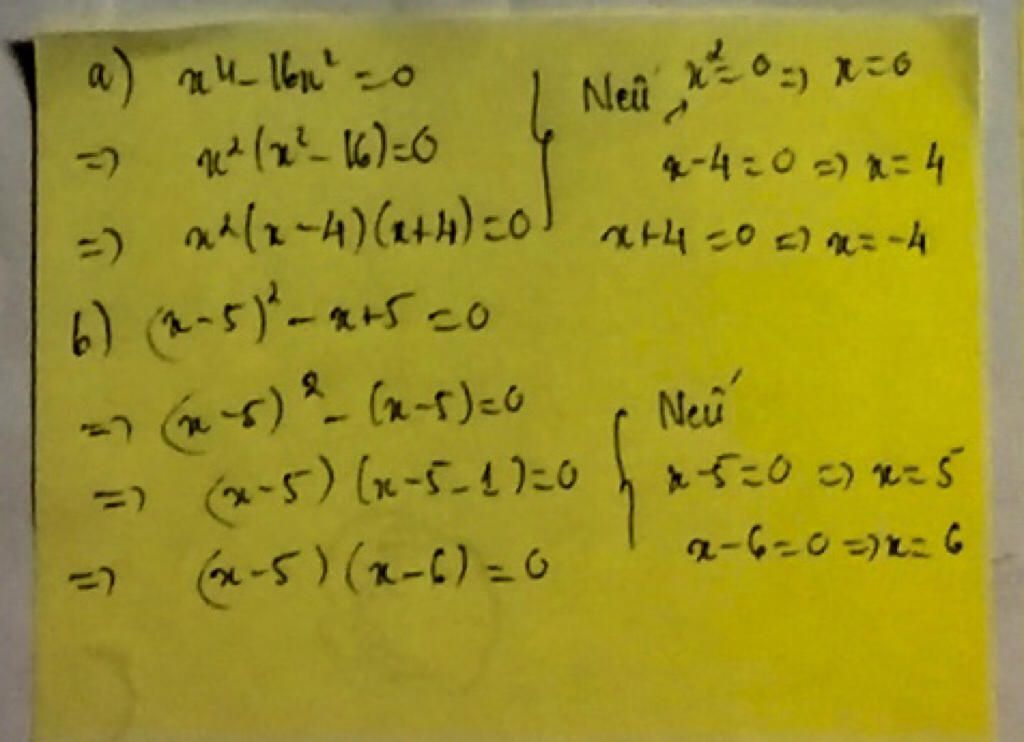 a) x⁴ - 16x² = 0
=> x²(x² - 16) = 0
=> x²(x - 4)(x + 4) = 0
Nếu x² = 0 => x = 0
x - 4 = 0 => x = 4
x + 4 = 0 => x = -4
b) (x - 5)² - x + 5 = 0
=> (x - 5)² - (x - 5) = 0
=> (x - 5)(x - 5 - 1) = 0
=> (x - 5)(x - 6) = 0
Nếu
x - 5 = 0 => x = 5
x - 6 = 0 => x = 6